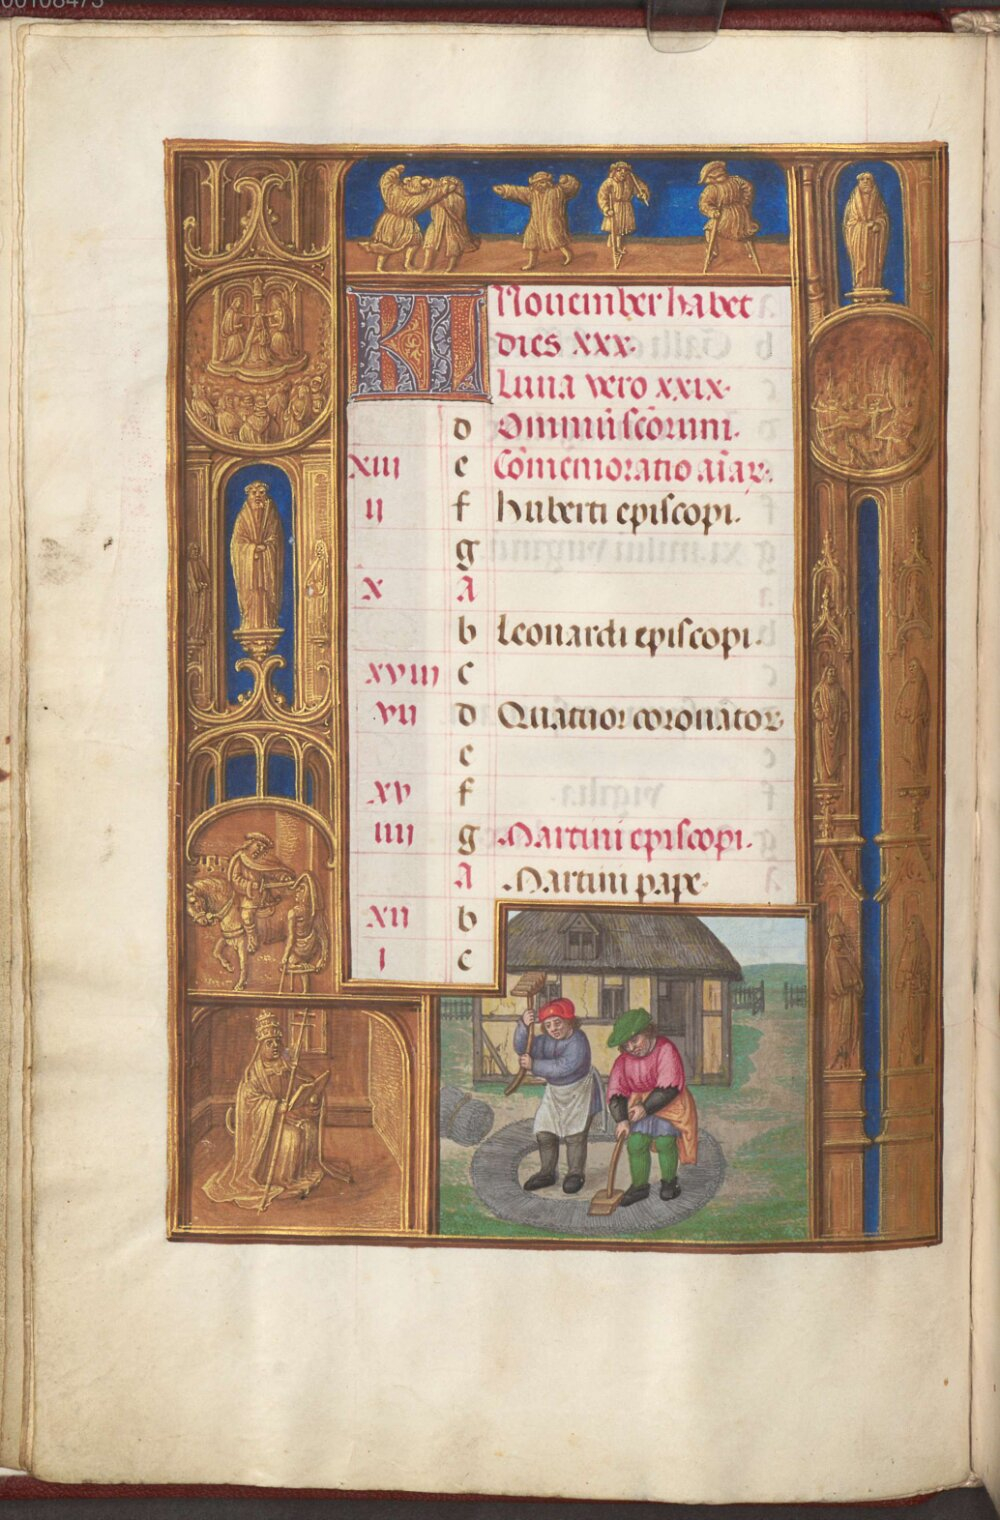 00108473
KL Nouember habet
dies xxx.
Luna vero xxix.
d Omniũ scõrum.
xiii e Cõmemoratio aĩar.
ii f Huberti episcopi.
g
x A
b Leonardi episcopi.
xviii c
vii d Quatuor coronator
e
xv f
iiii g Martini episcopi.
A Martini pape.
xii b
i c